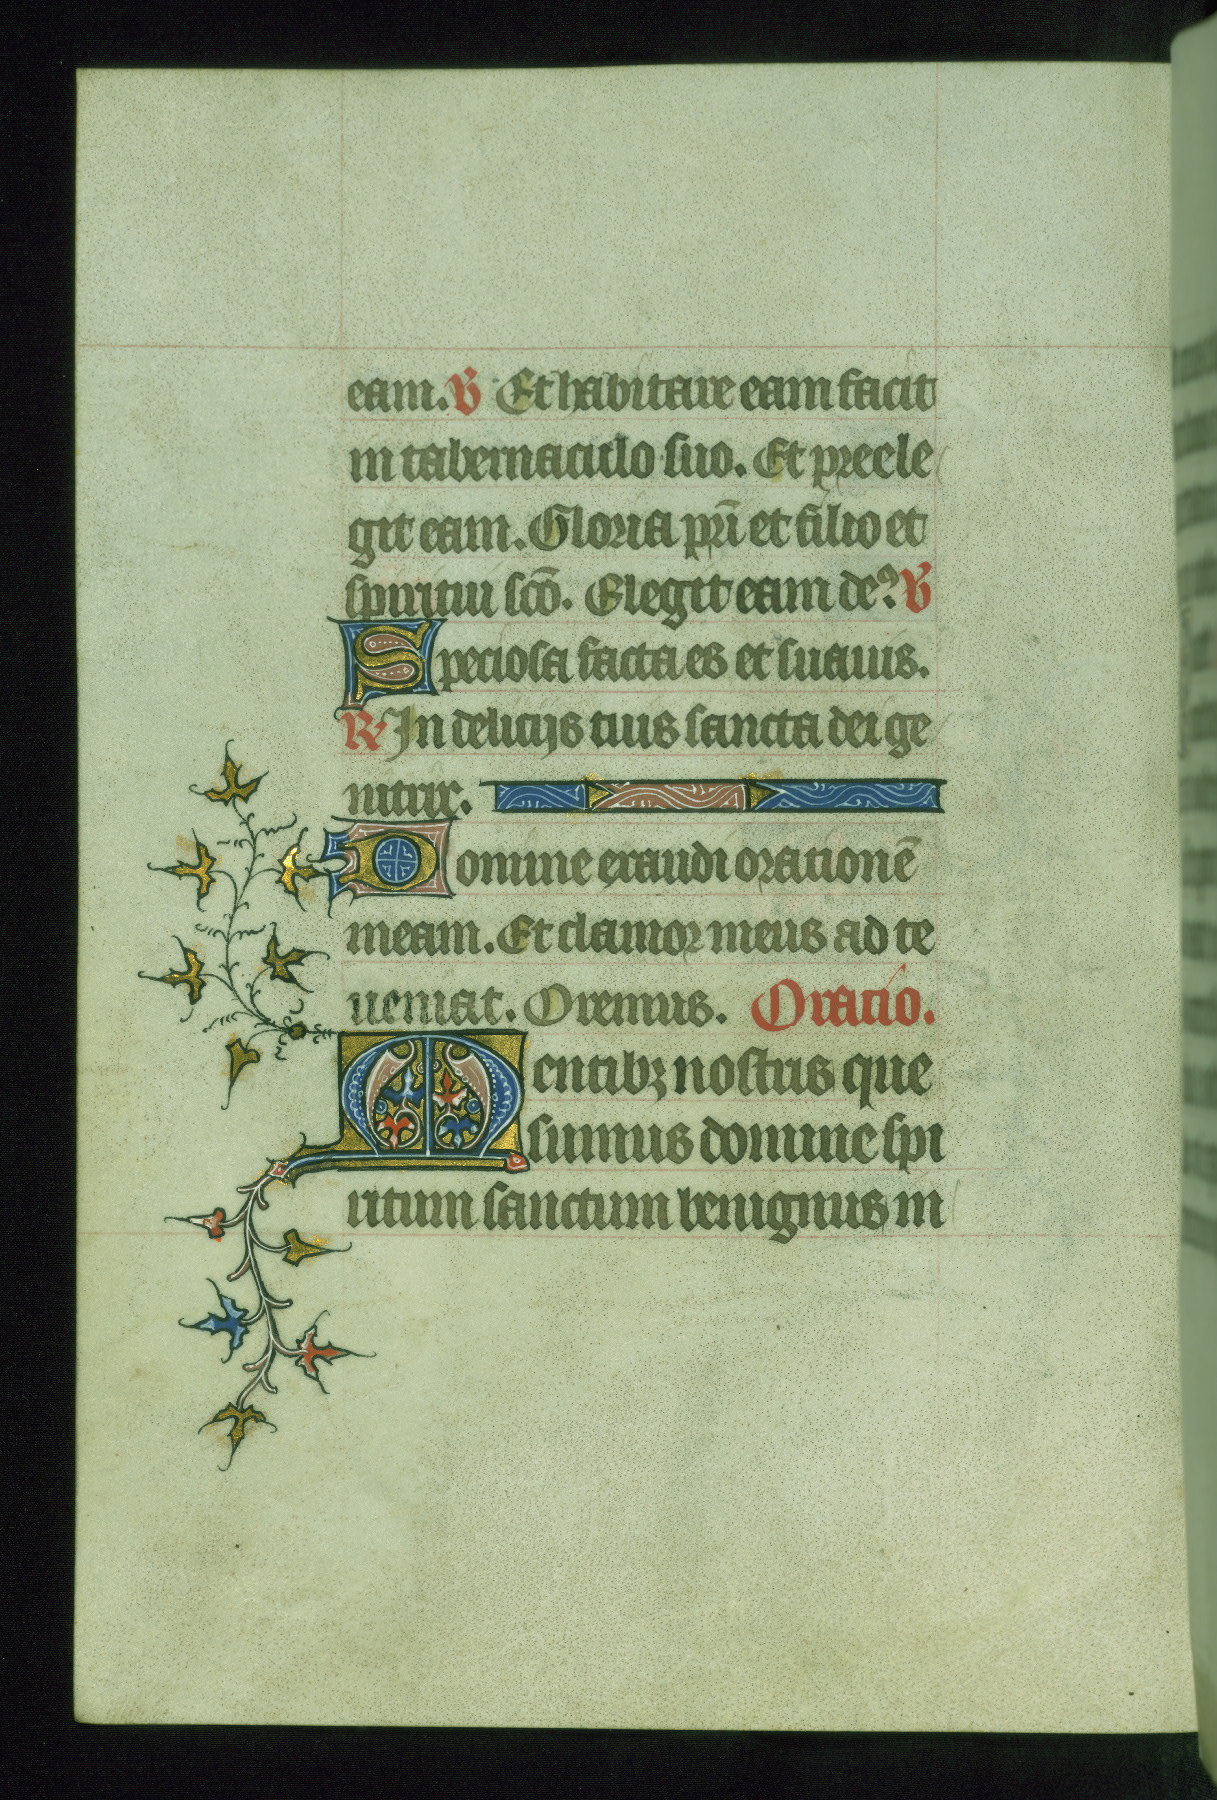 eam. V Et habitare eam facit
in tabernaculo suo. Et preele
git eam. Gloria pr̄i et filio et
spiritui sc̄o. Elegit eam de? V
Speciosa facta es et suauis.
R In delicijs tuis sancta dei ge
nitrix.
Domine exaudi orationē
meam. Et clamor meus ad te
ueniat. Oremus. Oratio.
Mentibꝫ nostris que
sumus domine spi
ritum sanctum benignus in